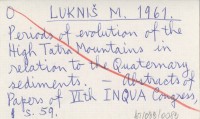 O LUKNIŠ M. 1961.
Periods of evolution of the
High Tatra Mountains in
relation to the Quaternary
sediments. — Abstracts of
Papers of VIth INQUA Congress,
s. 59.